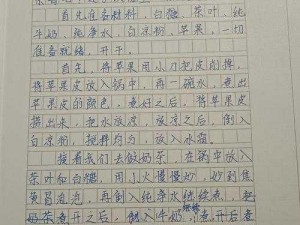 首先准备材料，白糖，茶叶，纯
牛奶，纯净水，白凉粉，苹果，一切
准备就绪，开干。
首先，将苹果用小刀把皮削掉，
将苹果皮放入锅中，再一碗水，煮出
苹果皮的颜色，煮好之后，将苹果皮
捞出来，把水放凉，放凉之后，倒入
白凉粉，搅拌均匀，放入冰箱。
接着我们去做奶茶，在锅中放入
茶叶和白糖，用小火慢慢炒，炒到焦
黄冒泡，再倒入纯净水继续煮，把
奶茶煮开之后，倒入牛奶，继续煮开后煮